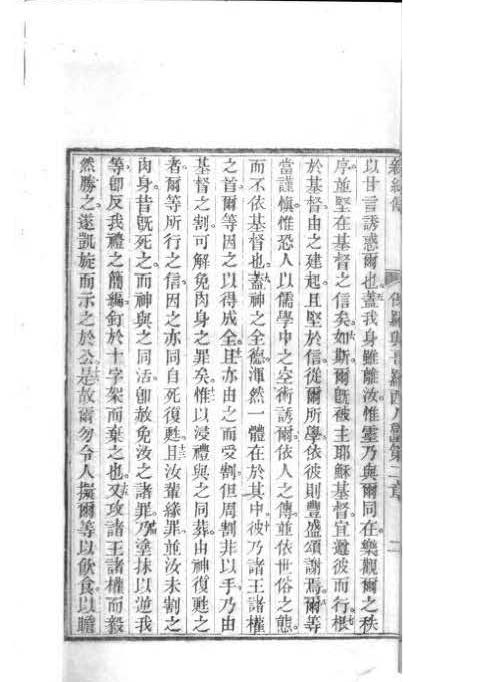 以甘言誘惑爾也蓋我身雖離汝惟靈乃與爾同在樂觀爾之秩
序並堅在基督之信矣如斯爾旣被主耶穌基督宜遊彼而行根
於基督由之建起且堅於信從爾所學依彼則豐盛頌謝焉爾等
當謹愼惟恐人以儒學中之空術誘爾依人之傳並依世俗之態
而不依基督也蓋神之全德渾然一體在於其中彼乃諸王諸權
之首爾等因之以得成全且亦由之而受割但周割非以手乃由
基督之割可解免肉身之罪矣惟以浸禮與之同葬由神復甦之
者爾等所行之信因之亦同自死復甦且汝輩緣罪並汝未割之
肉身昔旣死之而神與之同活卽赦免汝之諸罪乃塗抹以逆我
等卽反我禮之簡編釘於十字架而棄之也又攻諸王諸權而毅
然勝之遂凱旋而示之於公是故爾勿令人擬爾等以飲食以瞻